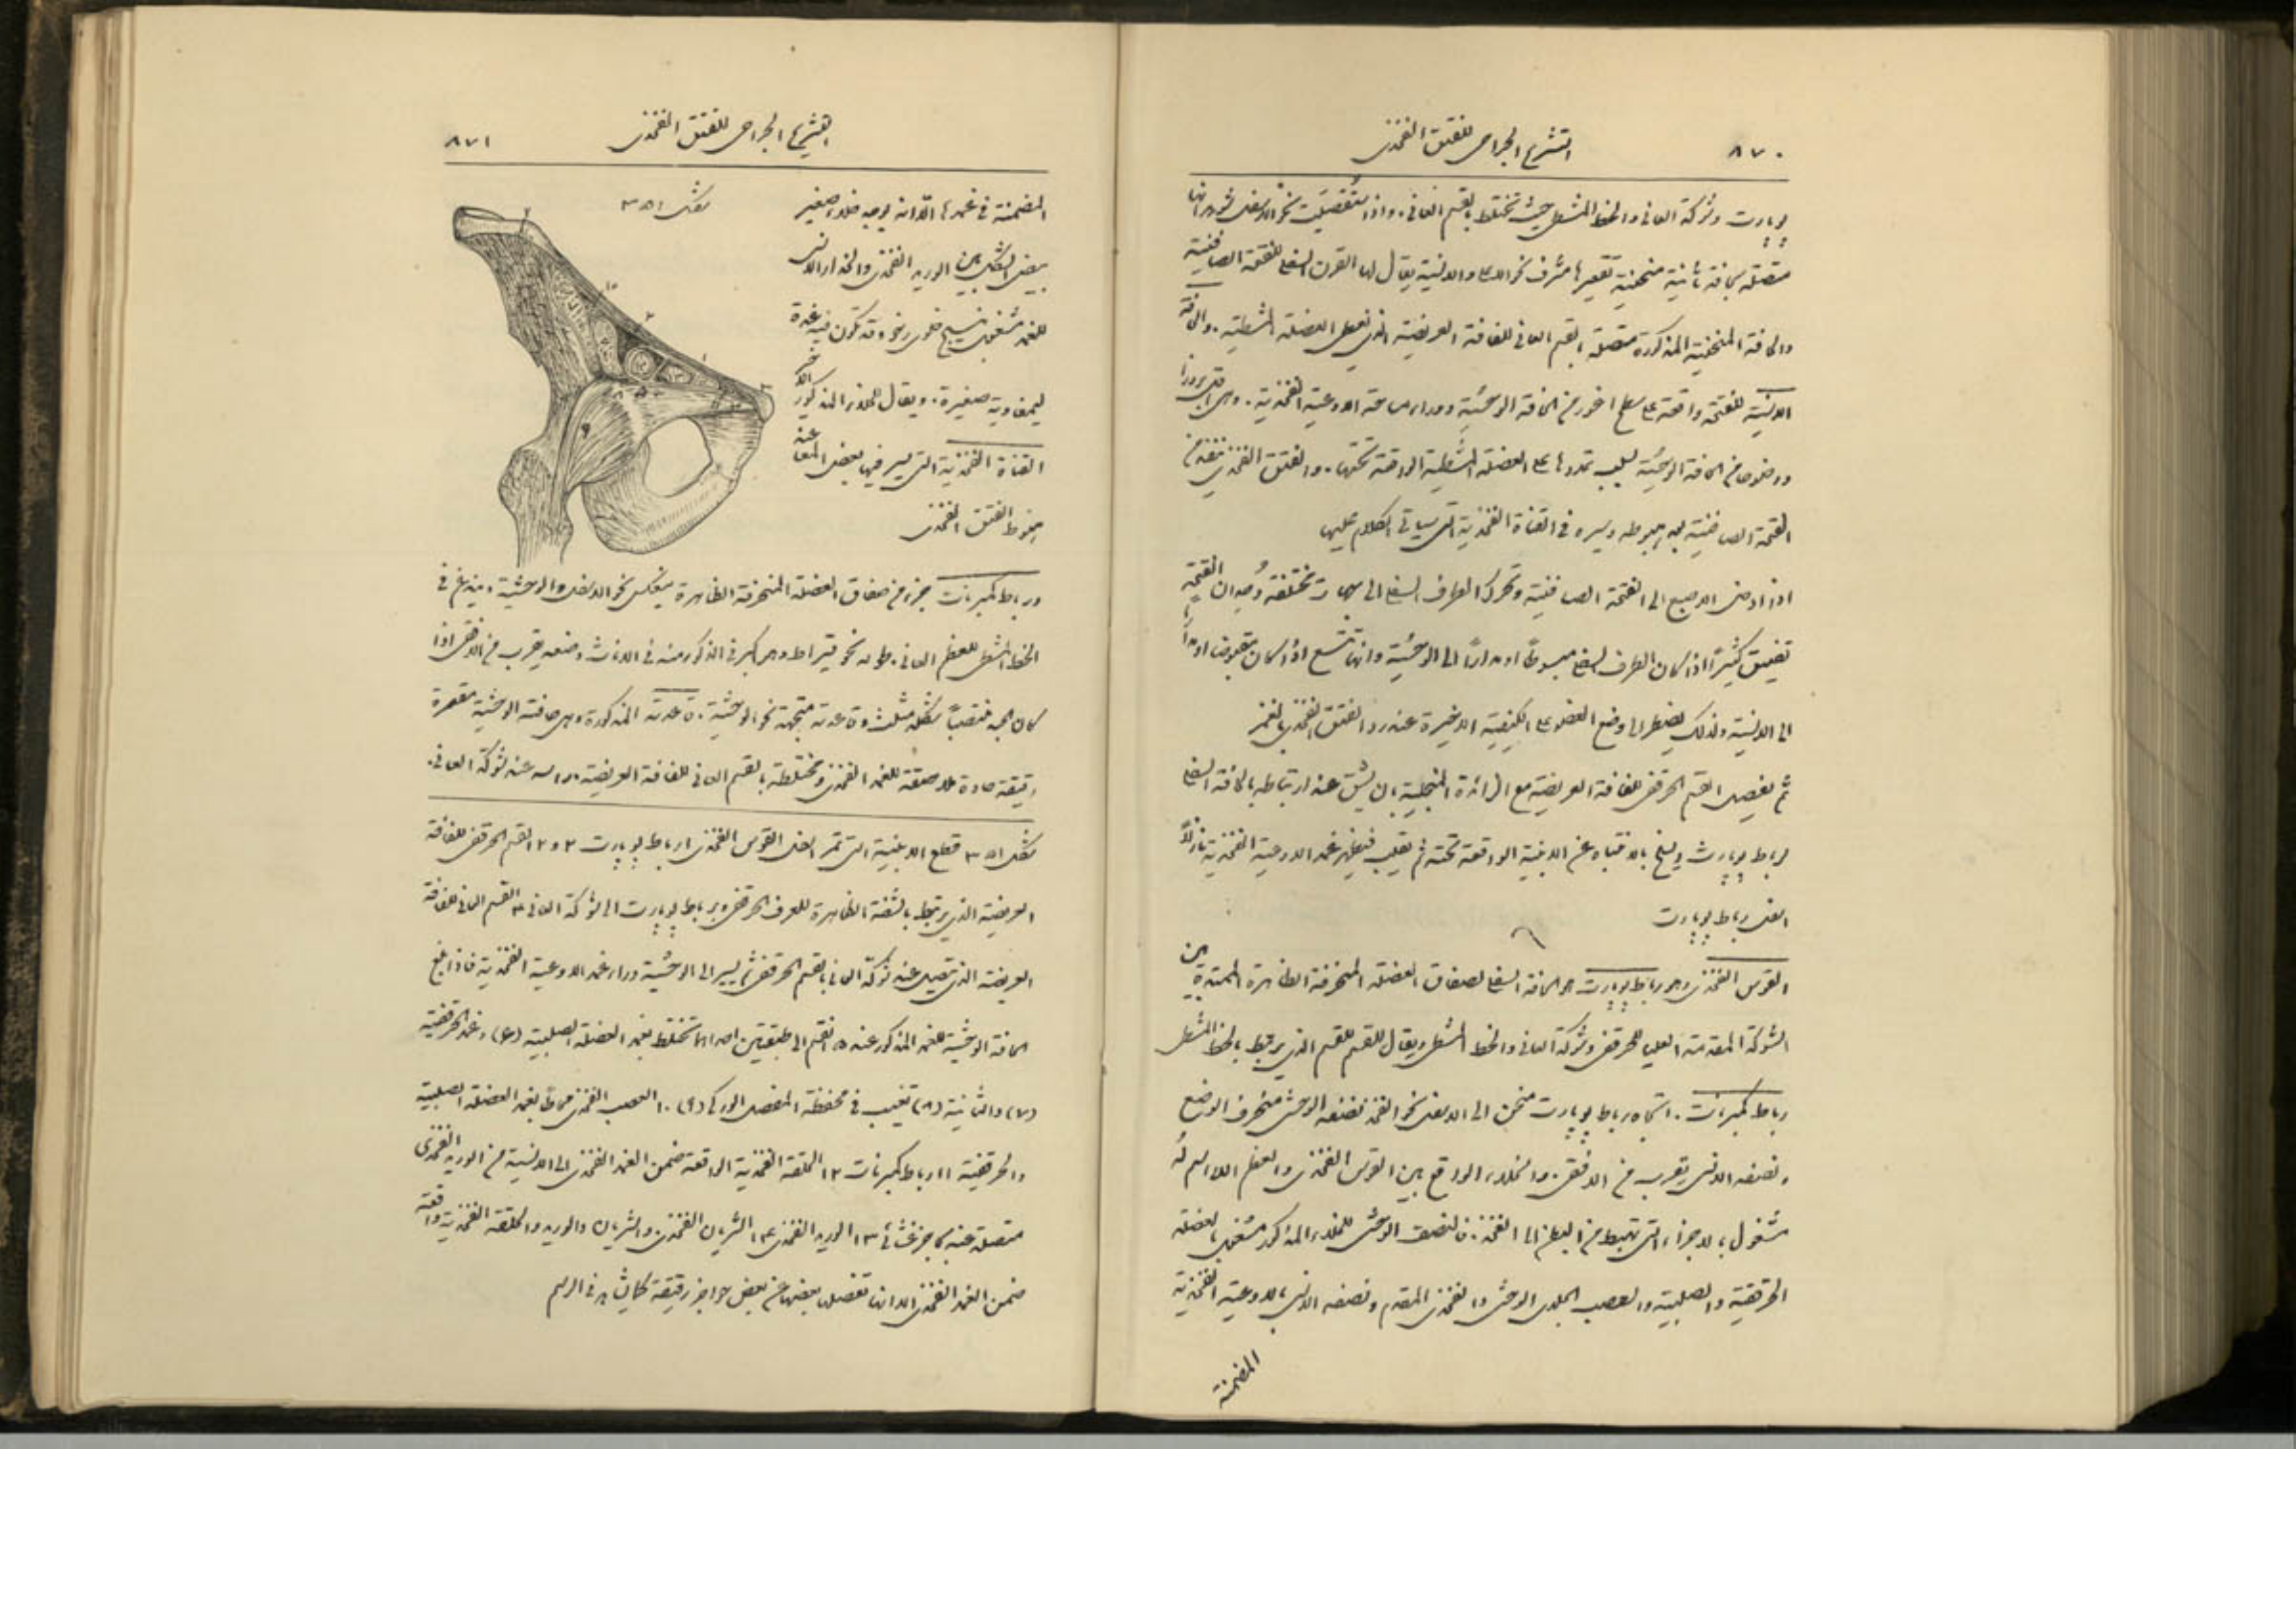 ٨٧٠
التشريح الجراحي للفتق الفخذي
لوبارت وشوكة العاني والخط المشطي حيث تختلط بالقسم العاني. واذا تُقصيت نحو الاسفل شوهد انها
متصلة بحافة ثانية منحنية تقعيرها مشرف نحو الاعلى والانسية يقال لها القرن السفلي للفتحة الصافنية
والحافة المنحنية المذكورة متصلة بالقسم العاني للفافة العريضة الذي يغطي العضلة المشطية. والحافة
الانسية للفتحة واقعة على سطح اغور من الحافة الوحشية ووراء ساحة الاوعية الفخذية. وهي اقل بروزا
ووضوحا من الحافة الوحشية لسبب تمددها على العضلة المشطية الواقعة تحتها. والفتق الفخذي ينفذ من
الفتحة الصافنية بعد هبوطه وسيره في القناة الفخذية التي سياتي الكلام عليها
اذا ادخل الاصبع الى الفتحة الصافنية وتحرك الطرف السفلي الى جهات مختلفة وُجد ان الفتحة
تضيق كثيرًا اذا كان الطرف السفلي مبسوطًا او مدارًا الى الوحشية وانها تتسع اذا كان مقبوضا او مدارًا
الى الانسية ولذلك يضطر الى وضع العضو على الكيفية الاخيرة عند رد الفتق الفخذي بالغمز
ثم يفصل القسم الحرقفي للفافة العريضة مع الزائدة المنجلية بان يشق عند ارتباطه بالحافة السفلى
لرباط لوبارت ويسلخ بالاعتناء عن الابنية الواقعة تحته ثم يقلب فيظهر غمد الاوعية الفخذية نازلاً
اسفل رباط لوبارت
القوس الفخذي وهو رباط لوبارت هو الحافة السفلى لصفاق العضلة المنحرفة الظاهرة الممتدة بين
الشوكة المقدمة العليا للحرقفي وشوكة العاني والخط المشطي ويقال للقسم الذي يرتبط بالخط المشطي
رباط كمبرنات. اتجاه رباط لوبارت منحن الى الاسفل نحو الفخذ نصفه الوحشي منحرف الوضع
ونصفه الانسي يقرب من الافقي. والخلاء الواقع بين القوس الفخذي والعظم اللااسم له
مشغول بالاجزاء التي تهبط من البطن الى الفخذ. فالنصف الوحشي للخلاء المذكور مشغول بالعضلة
الحرقفية والصلبية والعصب الجلدي الوحشي والفخذي المقدم ونصفه الانسي بالاوعية الفخذية
المضمنة
٨٧١
التشريح الجراحي للفتق الفخذي
شكل ٣٥١
المضمنة في غمدها الا انه يوجد خلاء صغير
بيضي الشكل بين الوريد الفخذي والجدار الانسي
للغمد مشغول بنسيج خلوي رخو وقد تكون فيه غدة
ليمفاوية صغيرة. ويقال للخلاء المذكور
القناة الفخذية التي يسير فيها بعض المعا عند
هبوط الفتق الفخذي
ورباط كمبرنات جزء من صفاق العضلة المنحرفة الظاهرة ينعكس نحو الاسفل والوحشية. يندغم في
الخط المشطي للعظم العاني. طوله نحو قيراط وهو اكبر في الذكور منه في الاناث وضعه يقرب من الافقي اذا
كان الجسد منتصبًا شكله مثلث وقاعدته متجهة نحو الوحشية. قاعدته المذكورة وهي حافته الوحشية مقعرة
رقيقة حادة ملاصقة للغمد الفخذي ومختلطة بالقسم العاني للفافة العريضة. راسه عند شوكة العاني.
شكل ٣٥١ قطع الابنية التي تمر اسفل القوس الفخذي ١ رباط لوبارت ٢ و ٢ القسم الحرقفي للفافة
العريضة الذي يرتبط بالشفة الظاهرة للعرف الحرقفي وبرباط لوبارت الى شوكة العاني ٣ القسم العاني للفافة
العريضة الذي يتصل عند شوكة العاني بالقسم الحرقفي ثم يسير الى الوحشية وراء غمد الاوعية الفخذية فاذا بلغ
الحافة الوحشية للغمد المذكور عند ٥ انقسم الى طبقتين احداهما تختلط بغمد العضلة الصلبية (٦) وغمد الحرقفية
(٧) والثانية (٨) تغيب في محفظة المفصل الوركي (٩) ١٠ العصب الفخذي محاطًا بغمد العضلة الصلبية
والحرقفية ١١ رباط كمبرنات ١٢ الحلقة الفخذية الواقعة ضمن الغمد الفخذي الى الانسية من الوريد الفخذي
متصلة عنه بحاجز غشائي ١٣ الوريد الفخذي ١٤ الشريان الفخذي. والشريان والوريد والحلقة الفخذية واقعة
ضمن الغمد الفخذي الا انها تنفصل بعضها عن بعض بحواجز رقيقة كما يشاهد في الرسم